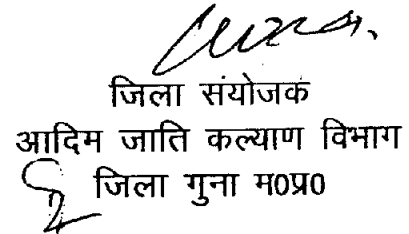 जिला संयोजक
आदिम जाति कल्याण विभाग
जिला गुना म0प्र0